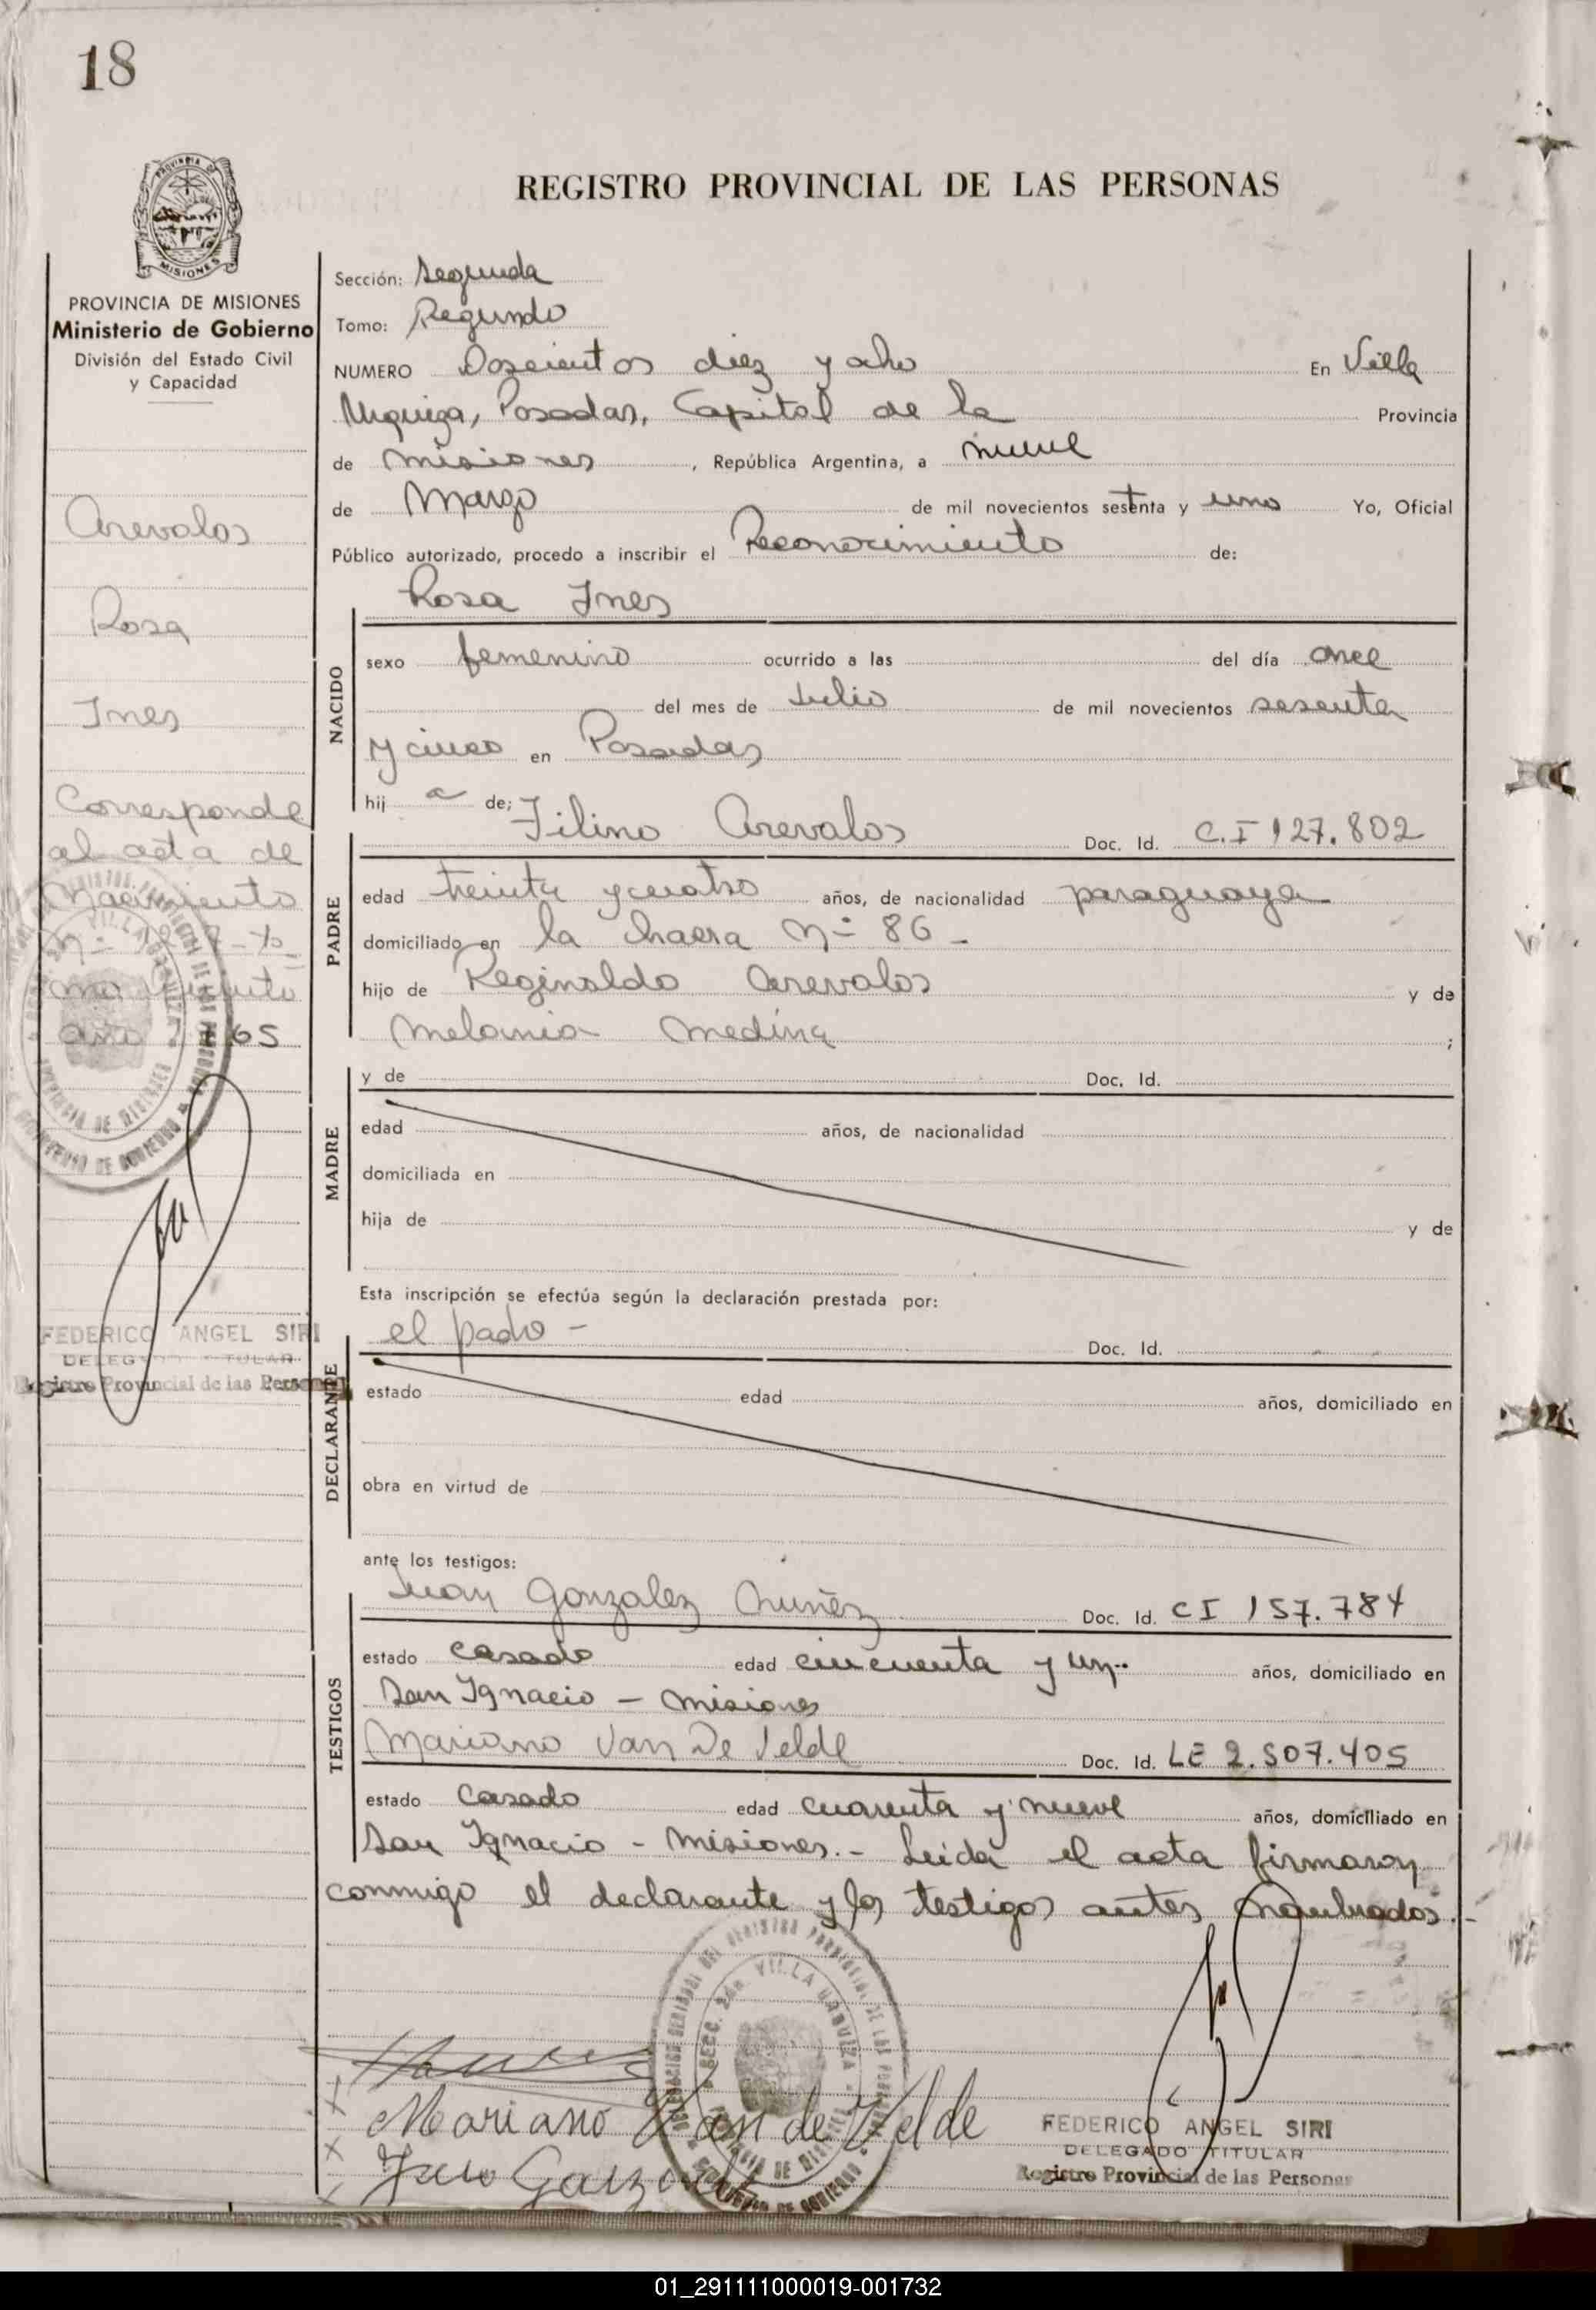 18
PROVINCIA DE MISIONES
REGISTRO PROVINCIAL DE LAS PERSONAS
PROVINCIA DE MISIONES
Ministerio de Gobierno
División del Estado Civil
y Capacidad
Arevalos
Rosa
Ines
Corresponde
al acta de
Nacimiento
año 1965
FEDERICO ANGEL SIRI
DELEGADO TITULAR
Registro Provincial de las Personas
Sección: Segunda
Tomo: Segundo
NUMERO Doscientos diez y ocho En Villa
Urquiza, Posadas, Capital de la Provincia
de Misiones, República Argentina, a nueve
de Marzo de mil novecientos setenta y uno Yo, Oficial
Público autorizado, procedo a inscribir el Reconocimiento de:
Rosa Ines
NACIDO
sexo femenino ocurrido a las del día once
del mes de Julio de mil novecientos sesenta
y cinco en Posadas
hij a de;
PADRE
Filino Arevalos Doc. Id. C.I 127.802
edad treinta y cuatro años, de nacionalidad paraguaya
domiciliado en la chacra Nº 86 -
hijo de Reginaldo Arevalos y de
Melania Medina ;
MADRE
y de Doc. Id.
edad años, de nacionalidad
domiciliada en
hija de y de
Esta inscripción se efectúa según la declaración prestada por:
DECLARANTE
el padre - Doc. Id.
estado edad años, domiciliado en
obra en virtud de
ante los testigos:
TESTIGOS
Juan Gonzalez Nuñez Doc. Id. CI 157.784
estado casado edad cincuenta y un años, domiciliado en
San Ignacio - Misiones
Mariano Van De Velde Doc. Id. LE 2.507.405
estado Casado edad cuarenta y nueve años, domiciliado en
San Ignacio - Misiones.- Leida el acta firmaron
conmigo el declarante y los testigos antes nombrados.-
SECC. 2da. VILLA URQUIZA
PROVINCIA DE MISIONES
Mariano Van de Velde
FEDERICO ANGEL SIRI
DELEGADO TITULAR
Registro Provincial de las Personas
01_291111000019-001732